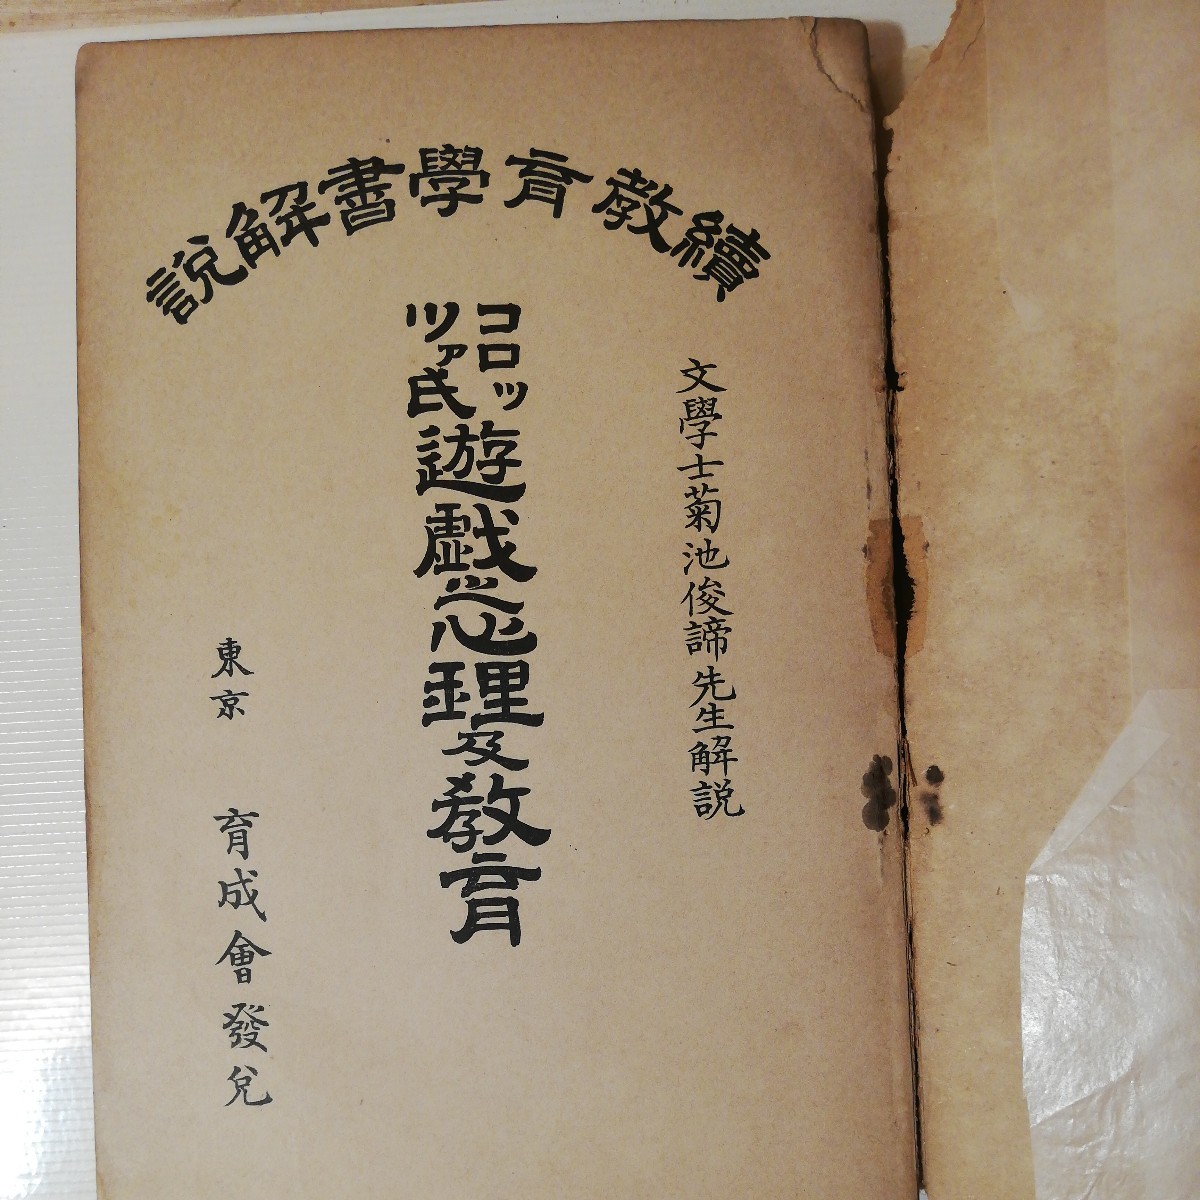 續教育學書解說
文學士菊池俊諦先生解説
コロッツァ氏遊戯心理及教育
東京 育成會發兌